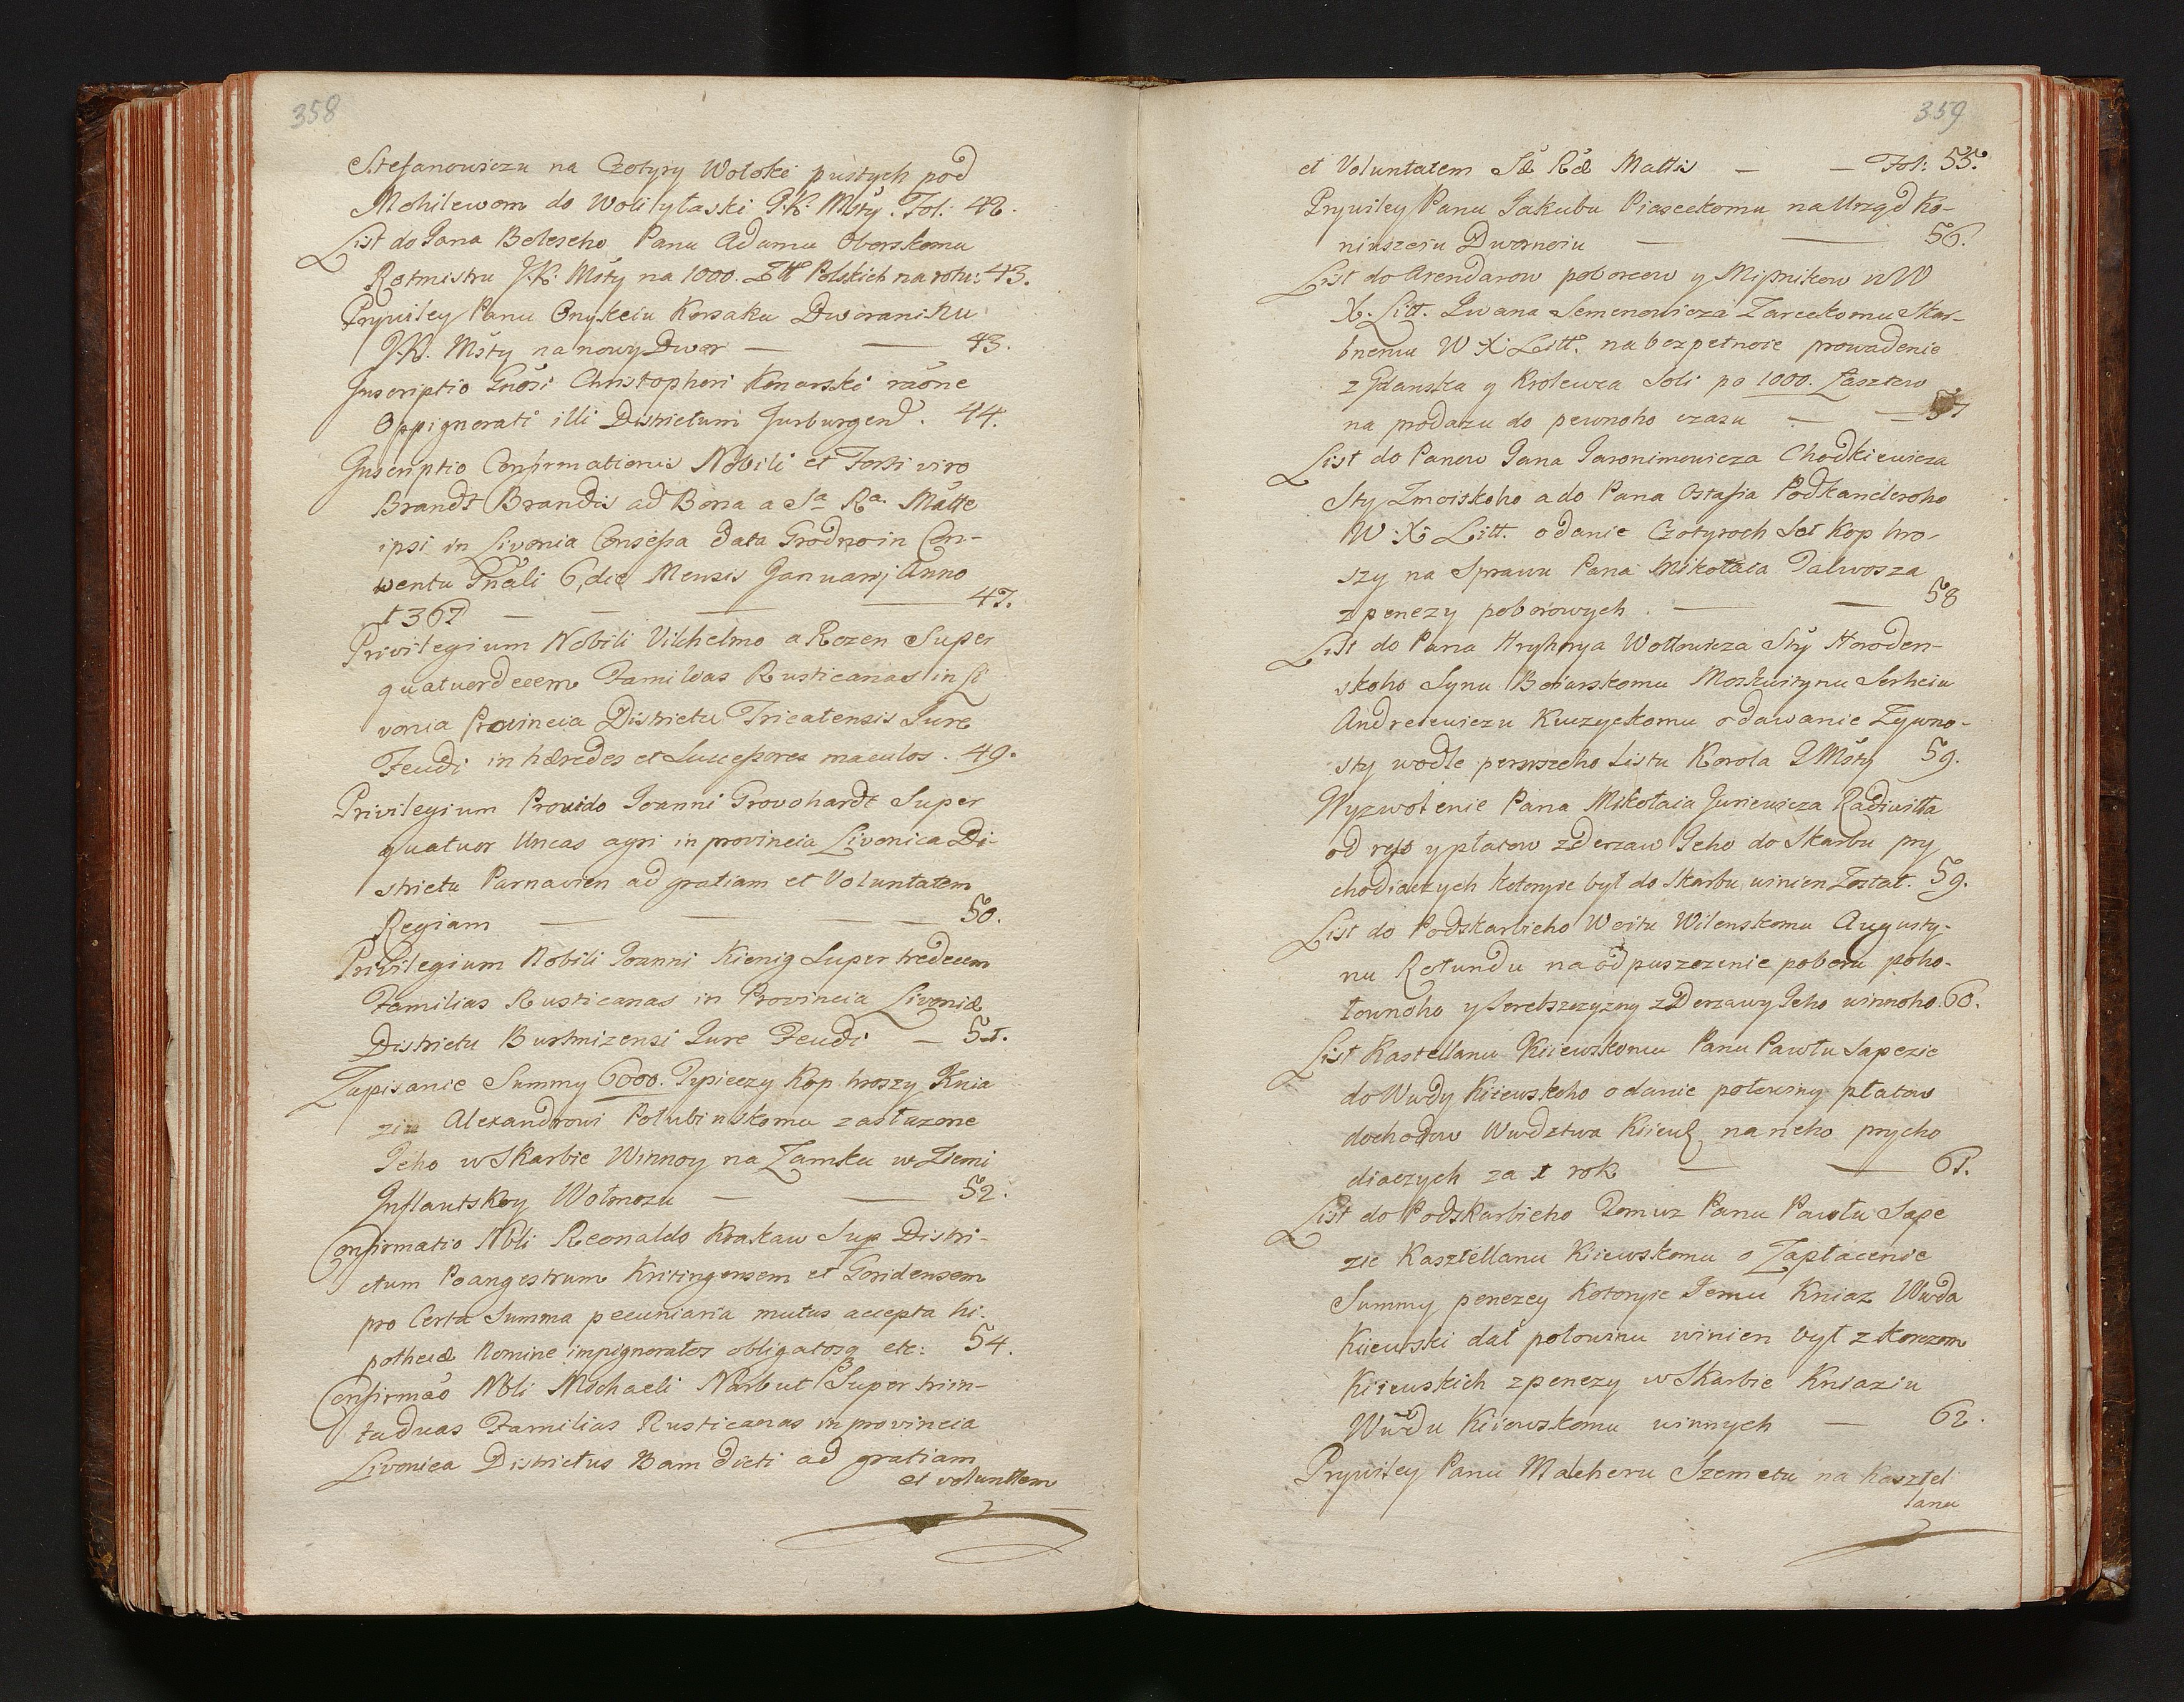 358
Stefanowiczu na Czotyry Wołoki pustych pod
Mohilewom do Woli y łaski J.K. Msty. Fol: 42.
List do Jana Beleseho Panu Adamu Oborskomu
Rotmistru J.K. Msty na 1000. Złł Polskich na rotu: 43.
Prywiley Panu Onykeiu Korsaku Dworaninu
J.K. Msty na nowy Dwor — — 43.
Inscriptio Gnosi Christophori Konarski raone
Oppignorati illi Districtum Jurburgend. 44.
Inscriptio Confirmationis Nobili et Forti viro
Brandt Brandis ad Bona a Sa Ra Matte
ipsi in Livonia Concessa data Grodno in Con-
wentu Gnali 6, die Mensis Januarij Anno
1367 — — — — 47.
Privilegium Nobili Vilhelmo a Rozen Super
quatuordecem Familias Rusticanas in Li
vonia Provincia Districtu Tricatensis Jure
Feudi in hæredes et Successores maculos. 49.
Privilegium Provido Joanni Grovohardt Super
quatuor Uncas agri in provincia Livonica Di-
strictu Parnavien ad gratiam et Voluntatem
Regiam — — — — 50.
Privilegium Nobili Joanni Kienig Super tredecem
Familias Rusticanas in Provincia Livoniæ
Districtu Burtnizensi Jure Feudi — 51.
Zapisanie Summy 6000. Tysieczy Kop hroszy Knia
ziu Alexandrowi Polubinskomu zasłuzone
Jeho w Skarbie Winnoy na Zamku w Ziemi
Inflantskoy Wolmozu — — 52.
Confirmatio Nbli Reonaldo Krakaw Sup Distri-
ctum Poangestrum Kritingensem et Goridensem
pro Certa Summa pecuniaria mutus accepta hi-
pothecæ Nomine impignoratos obligatosq etc: 54.
Confirmao Nbli Michaeli Narbut Super trin-
ta duas Familias Rusticanas in provincia
Livonica Districtus Bam dicti ad gratiam
et voluntem
359
et Voluntatem Sæ Ræ Mattis — — Fol: 55.
Prywiley Panu Jakubu Piaseckomu na Urząd Ko-
niuszeiu Dwornoiu — — 56.
List do Arendarow poborcow y Mipnikow u W
X. Litt. Iwana Semenowicza Zareckomu Skar-
bnemu W X Litt. na bezpetnoie prowadenie
z Gdanska y Krolewca Soli po 1000. Łasztow
na prodazu do pewnoho czasu — — 57
List do Panow Jana Jaronimowicza Chodkiewicza
Sty Zmoiskoho a do Pana Ostafia Podkancleroho
W X Litt. o danie Czotyroch Set Kop hro-
szy na Sprawu Pana Mikołaia Talwosza
z penezy poborowych. — — 58
List do Pana Hryhorya Wołłowicza Sty Horoden-
skoho Synu Boiarskomu Moskwitynu Serheiu
Andreiewiczu Kuczyckomu o dawanie Zywno-
sty wodle perwszeho Listu Korola J Msty 59.
Wyzwolenie Pana Mikołaia Juriewicza Radiwiłła
od rest y płatow z Derzaw Jeho do Skarbu pry
chodiaczych kotoryie był do Skarbu winien Został. 59.
List do Podskarbieho Woitu Wilenskomu Augusty-
nu Rotundu na odpuszczenie poboru poho-
łownoho y Serebszczyzny z Derzawy Jeho winnoho. 60.
List Kastellanu Kiiewskomu Panu Pawłu Sapezie
do Wwdy Kiiewskoho o danie połowiny płatow
dochodow Wwdztwa Kiiewsk na neho prycho
diaczych za 1 rok — — 61.
List do Podskarbieho Tomuz Panu Pawłu Sape
zie Kasztellanu Kiiewskomu o Zapłacenie
Summy penezey Kotoryie Jemu Kniaz Wwda
Kiiewski dał połowinu winien był z Korczom
Kiiewskich z penezy w Skarbie Kniaziu
Wwdu Kiiewskomu winnych — 62.
Prywiley Panu Malcheru Szemetu na Kasztel
lanu